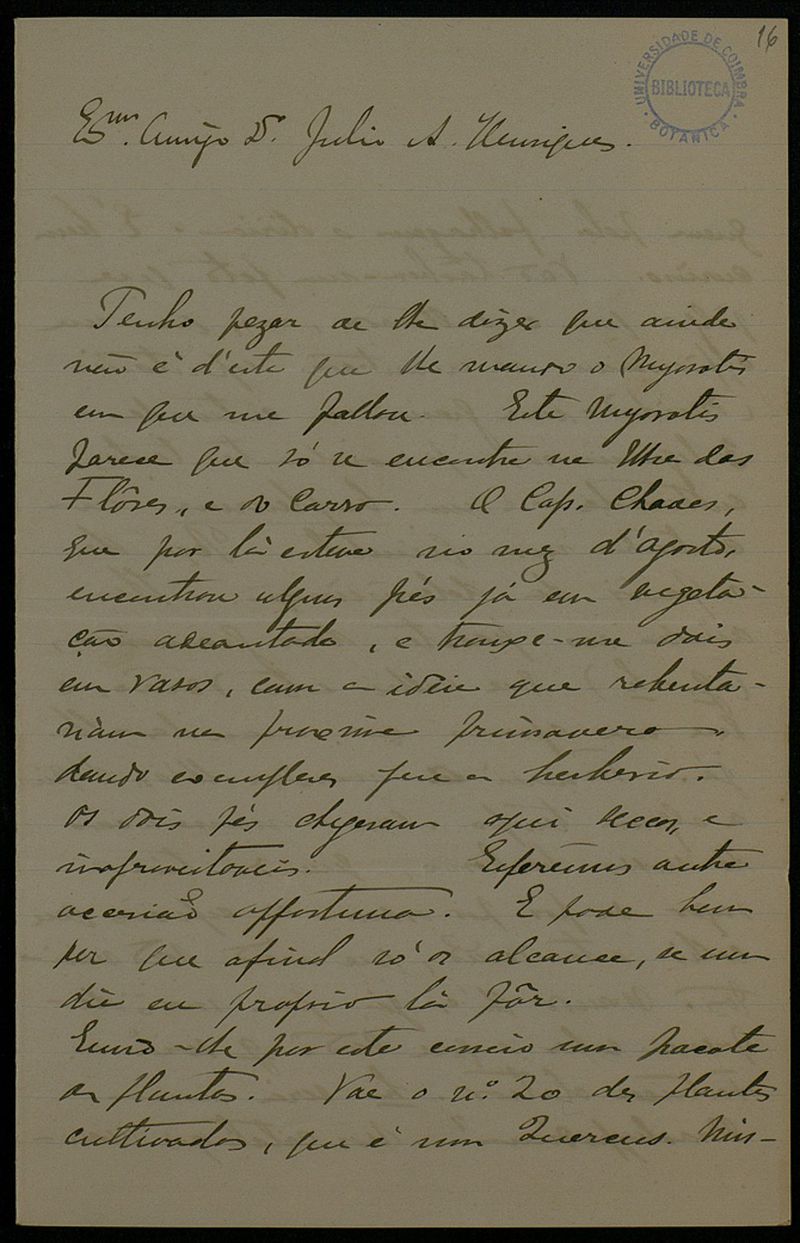 16
UNIVERSIDADE DE COIMBRA
BIBLIOTECA
BOTANICA
Exmo. Amigo Dr. Julio A. Henriques.
Tenho pezar de lhe dizer que ainda
não é d'esta que lhe mando o Myosotis
em que me fallou. Este Myosotis
parece que só se encontra na Ilha das
Flôres, e do Corvo. O Cap. Chaves,
que por lá esteve no mez d'agosto,
encontrou alguns pés já em vegeta-
ção adeantada, e trouxe-me dois
em vasos, com a idéia que rebenta-
riam na proxima primavera,
dando exemplares para o herbario.
Os dois pés chegaram aqui seccos, e
inaproveitaveis. Esperemos outra
occasião opportuna. E pode bem
ser que afinal só os alcance, se um
dia eu proprio lá fôr.
Envio-lhe por este correio um pacote
de plantas. Vae o nº. 20 das plantas
cultivadas, que é um Quercus.